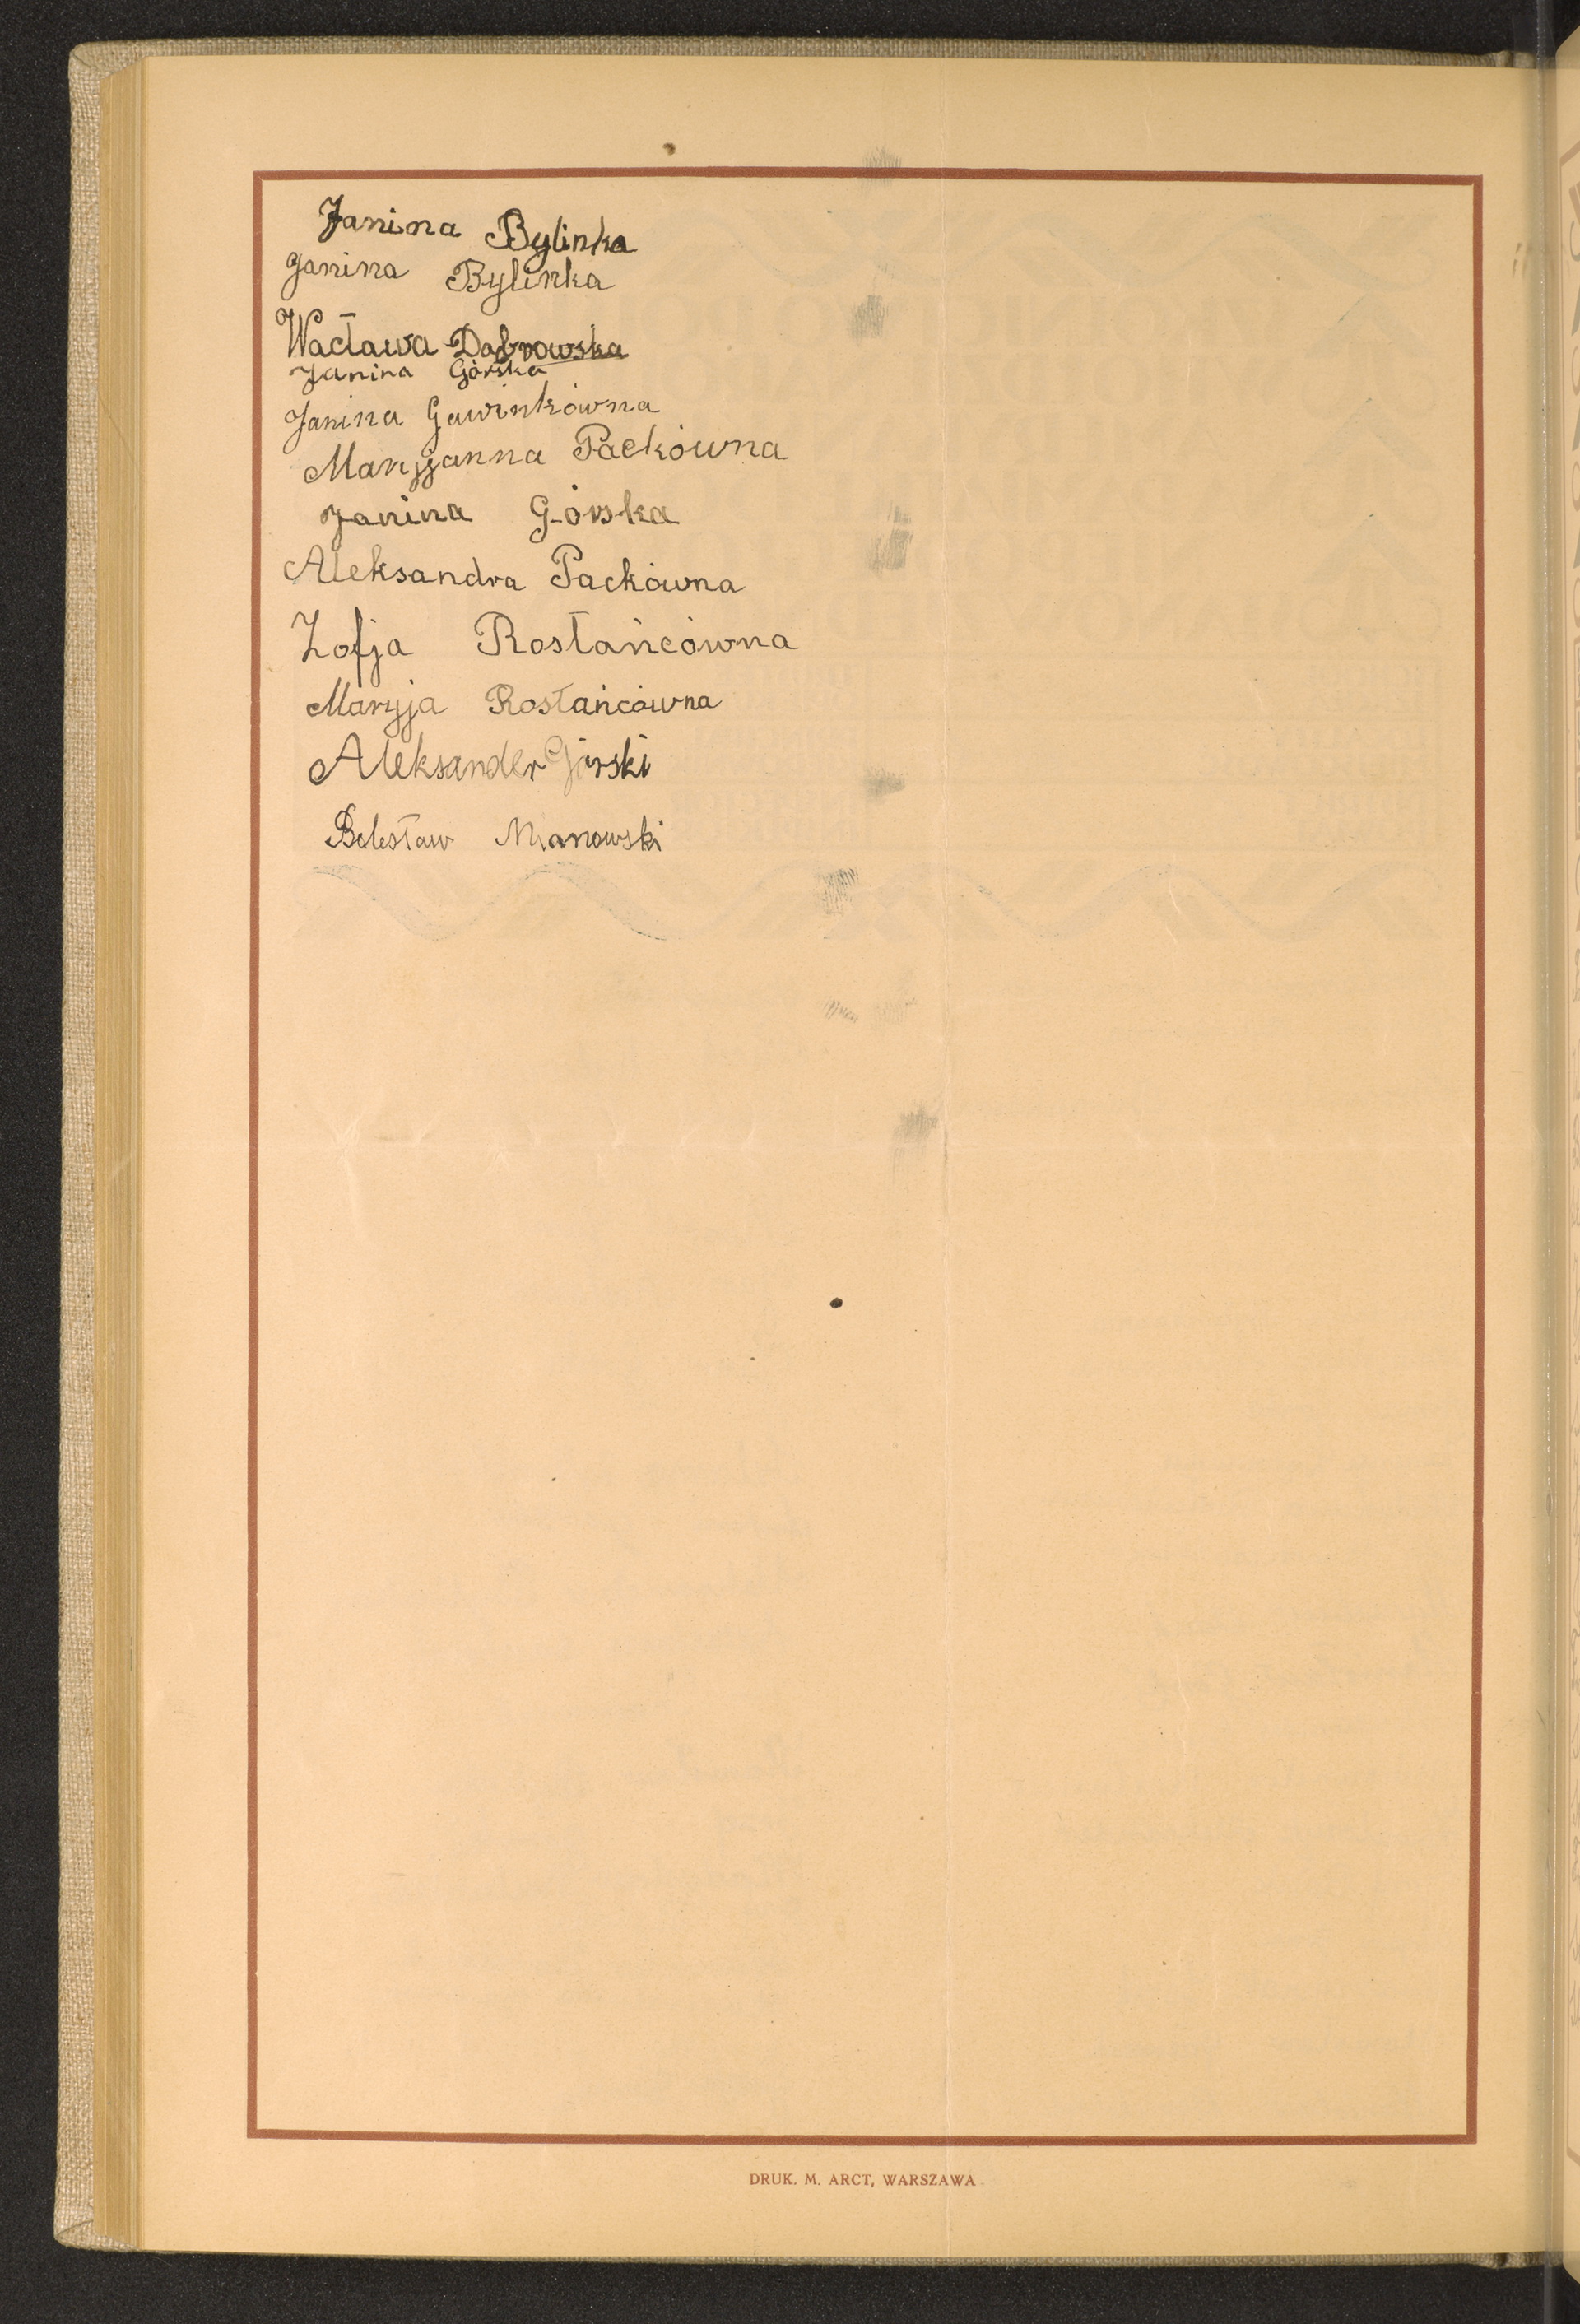 Janina Bylinka
Janina Bylinka
Wacława Dąbrowska
Janina Górska
Janina Gawinkówna
Maryjanna Paekówna
Janina Górska
Aleksandra Packówna
Zofja Rostańcówna
Maryja Rostańcówna
Aleksander Górski
Bolesław Mianowski
DRUK. M. ARCT, WARSZAWA